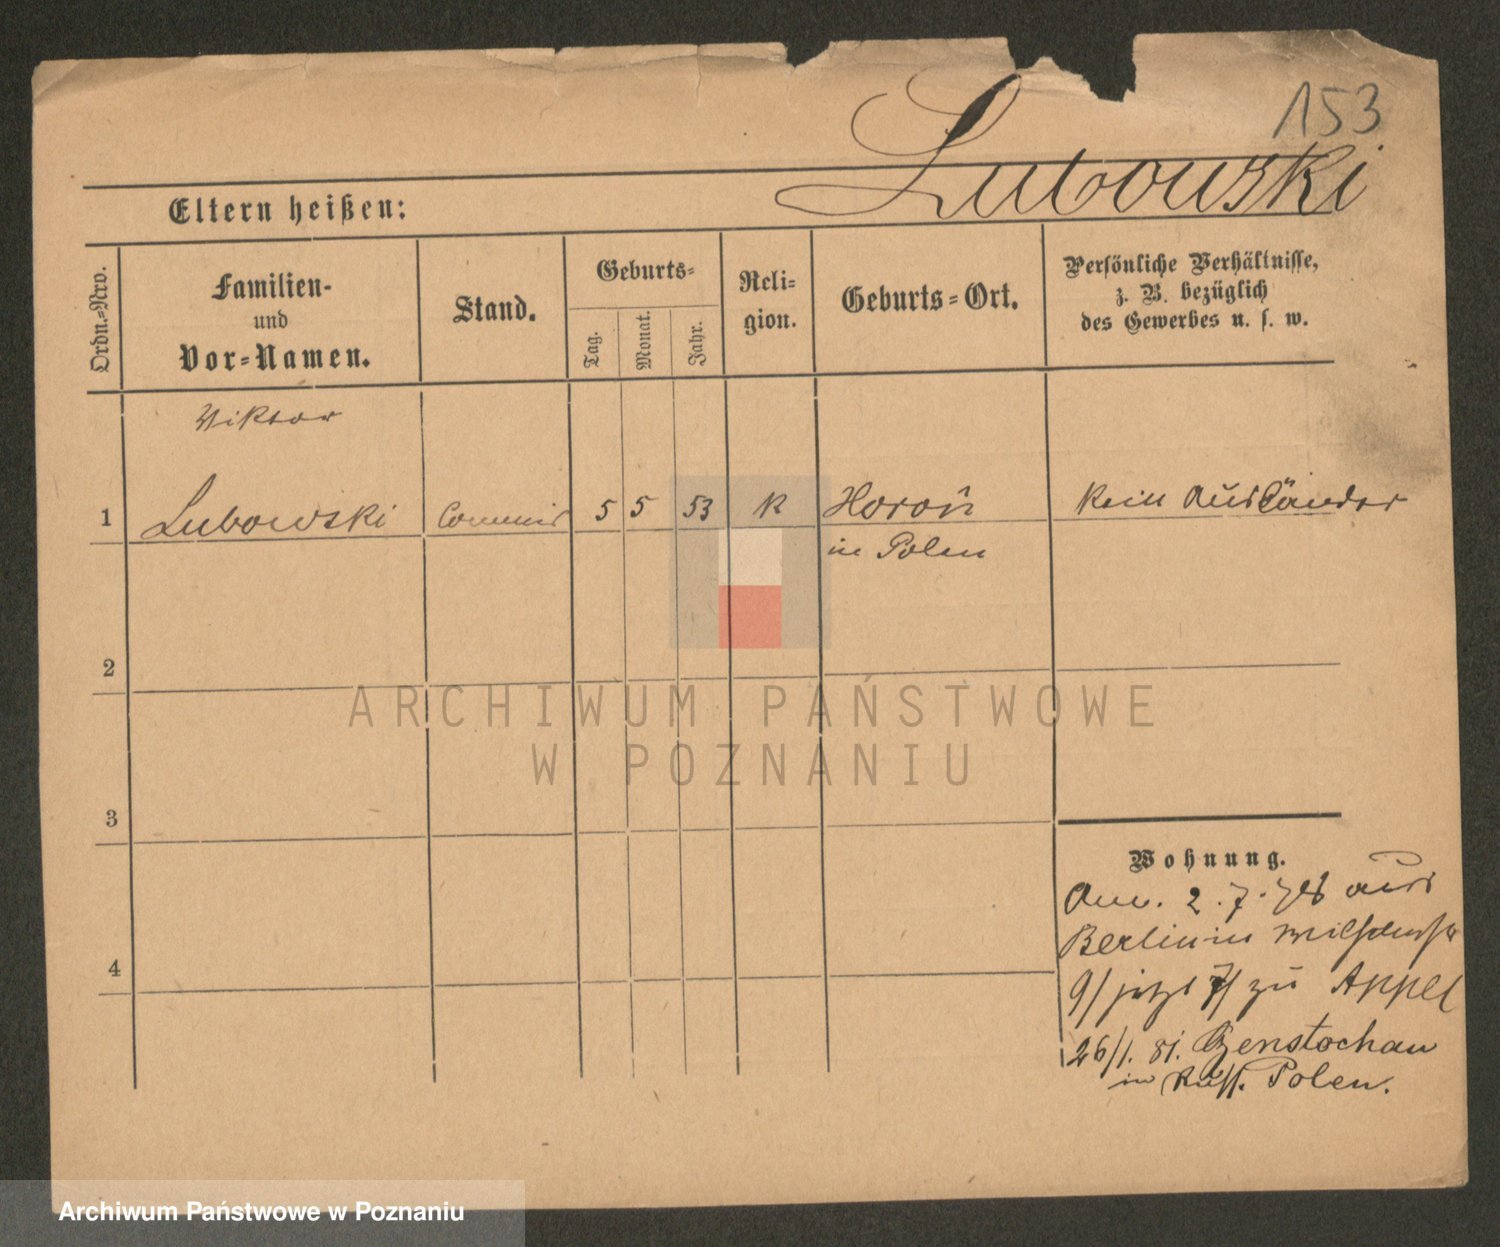 153
Lubowski
Eltern heißen:
Ordn.=Nro.
Familien-
und
Vor=Namen.
Stand.
Geburts=
Tag.
Monat.
Jahr.
Reli=
gion.
Geburts=Ort.
Persönliche Verhältnisse,
z. B. bezüglich
des Gewerbes u. s. w.
Viktor
1 Lubowski Commis 5 5 53 K Horoń kein Ausländer
in Polen
2
3
4
Wohnung.
Am. 2. 7. 78 aus
Berlin in
9/ jetzt 7/ zu Appel
26/1. 81. Czenstochau
in Russ. Polen.
ARCHIWUM PAŃSTWOWE
W POZNANIU
Archiwum Państwowe w Poznaniu